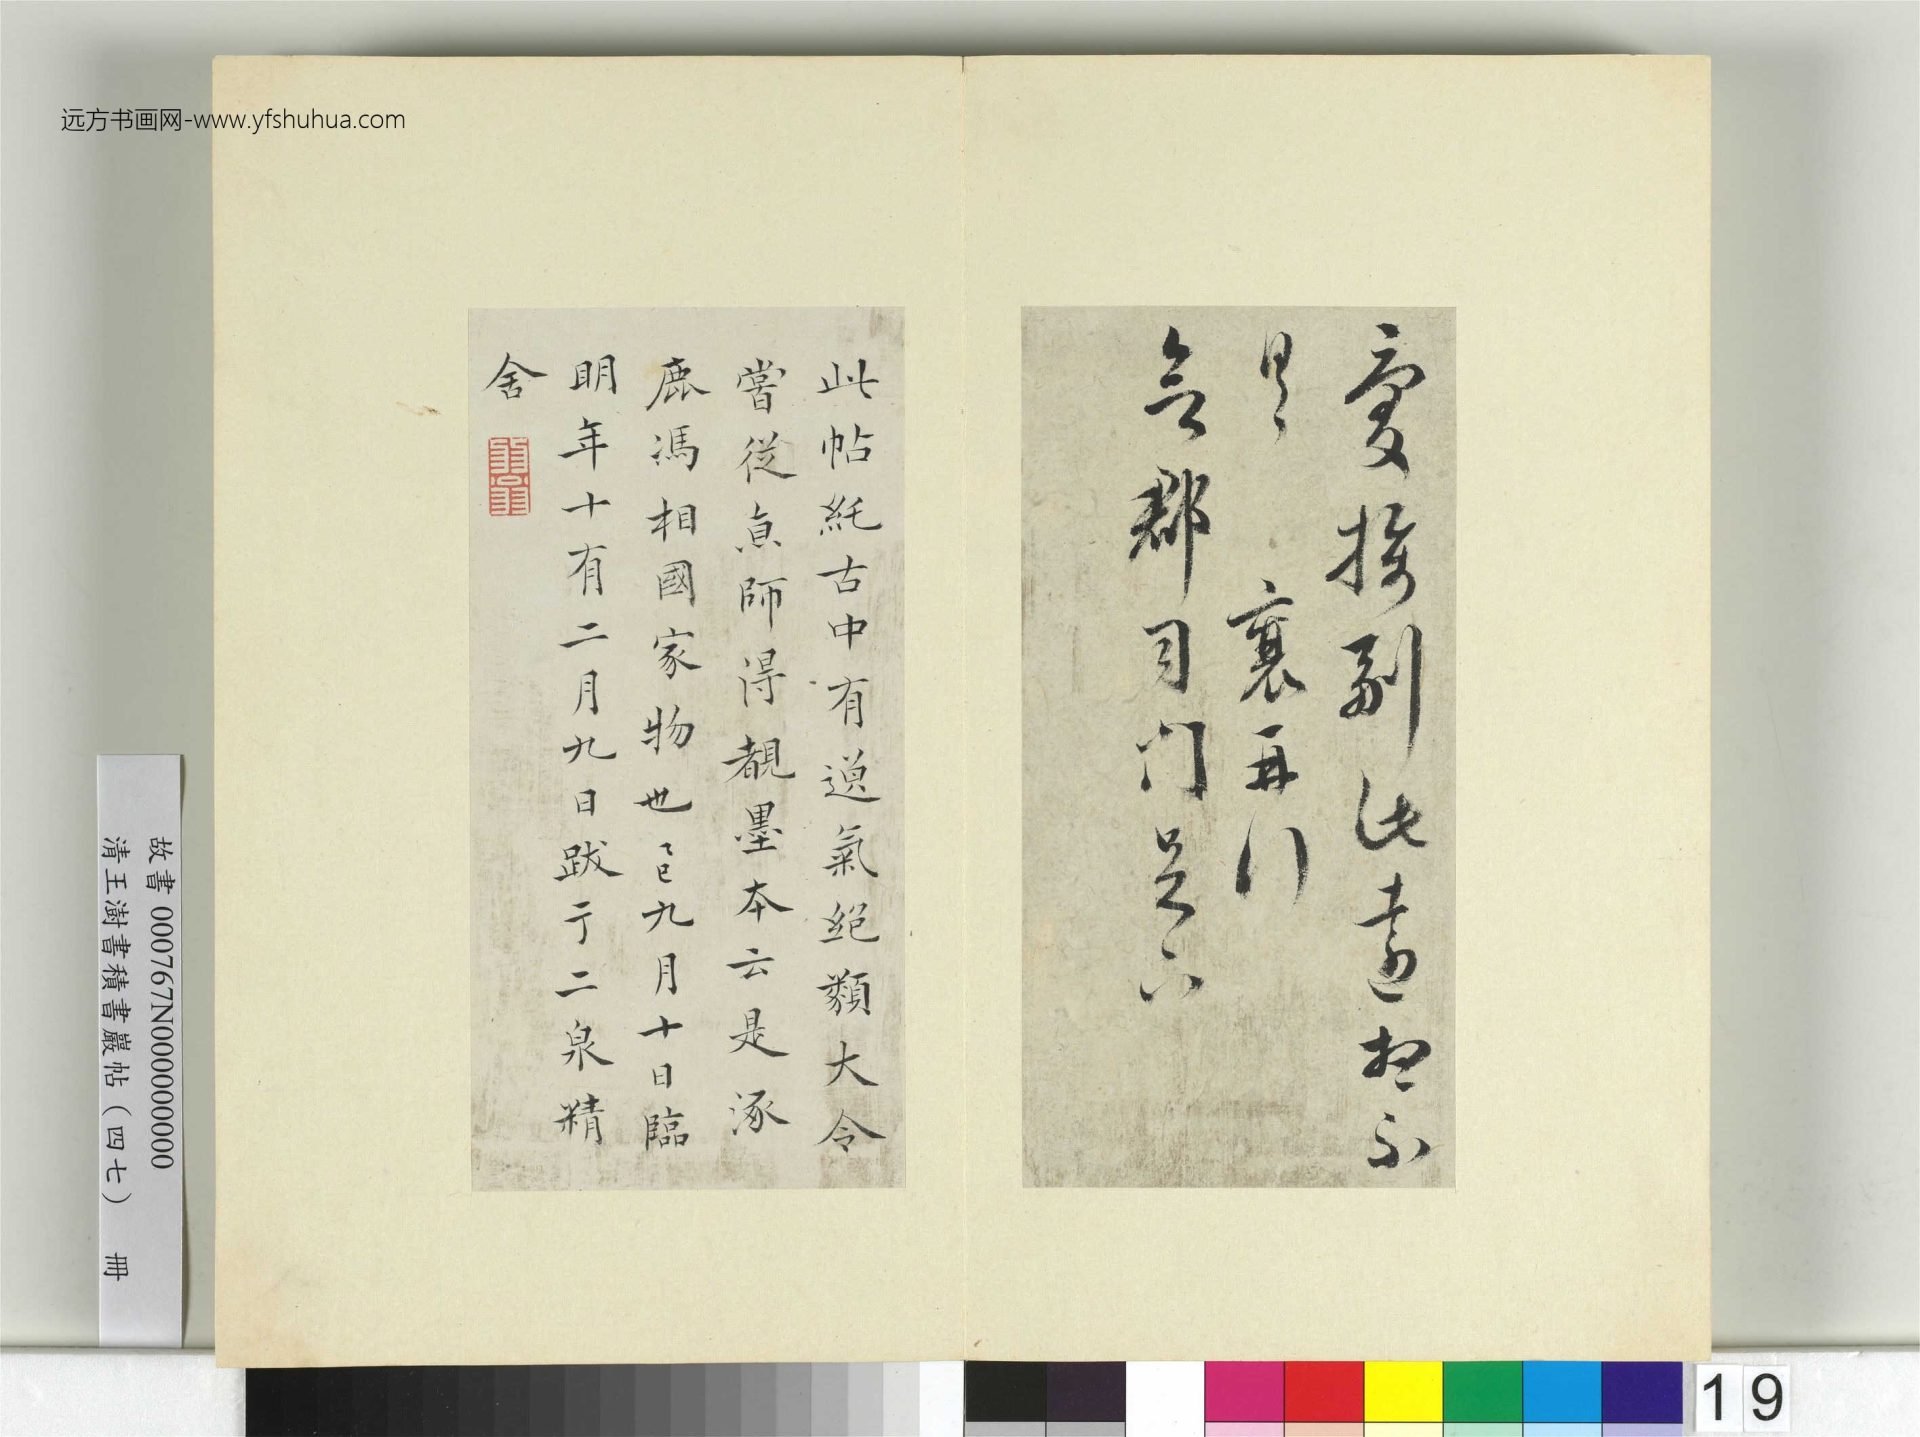 远方书画网-www.yfshuhua.com
憂撓副此遠想不
具 襄再行
郡司門足下
此帖純古中有逌氣絕類大令
嘗從貞師得覩墨本云是涿
鹿馮相國家物也己巳九月十日臨
明年十有二月九日跋于二泉精
舍
故書 000767N000000000
清王澍書積書巖帖(四七) 冊
19